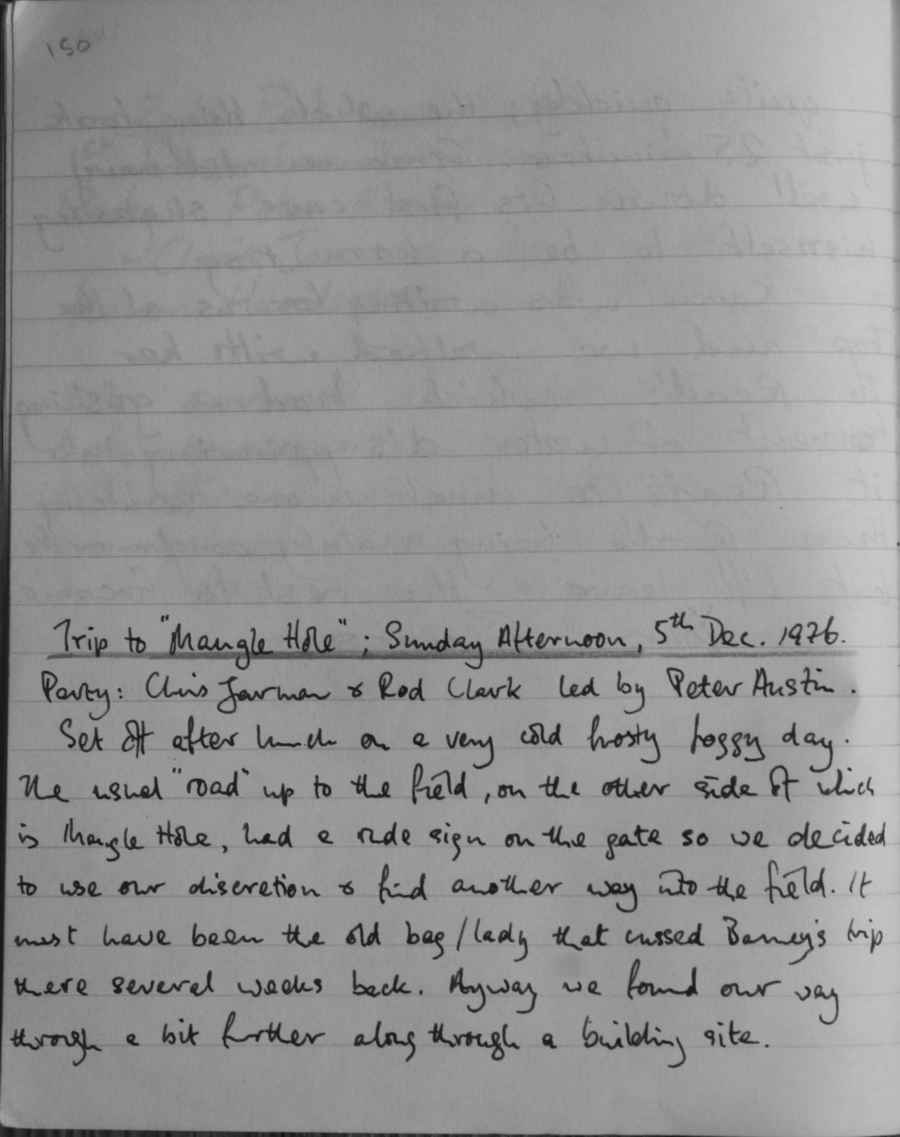 150
Trip to "Mangle Hole"; Sunday Afternoon, 5th Dec. 1976.
Party: Chris Jarman & Rod Clark led by Peter Austin.
Set off after lunch on a very cold frosty foggy day.
The usual "road" up to the field, on the other side of which
is Mangle Hole, had a rude sign on the gate so we decided
to use our discretion & find another way into the field. It
must have been the old bag/lady that cussed Barney's trip
there several weeks back. Anyway we found our way
through a bit further along through a building site.